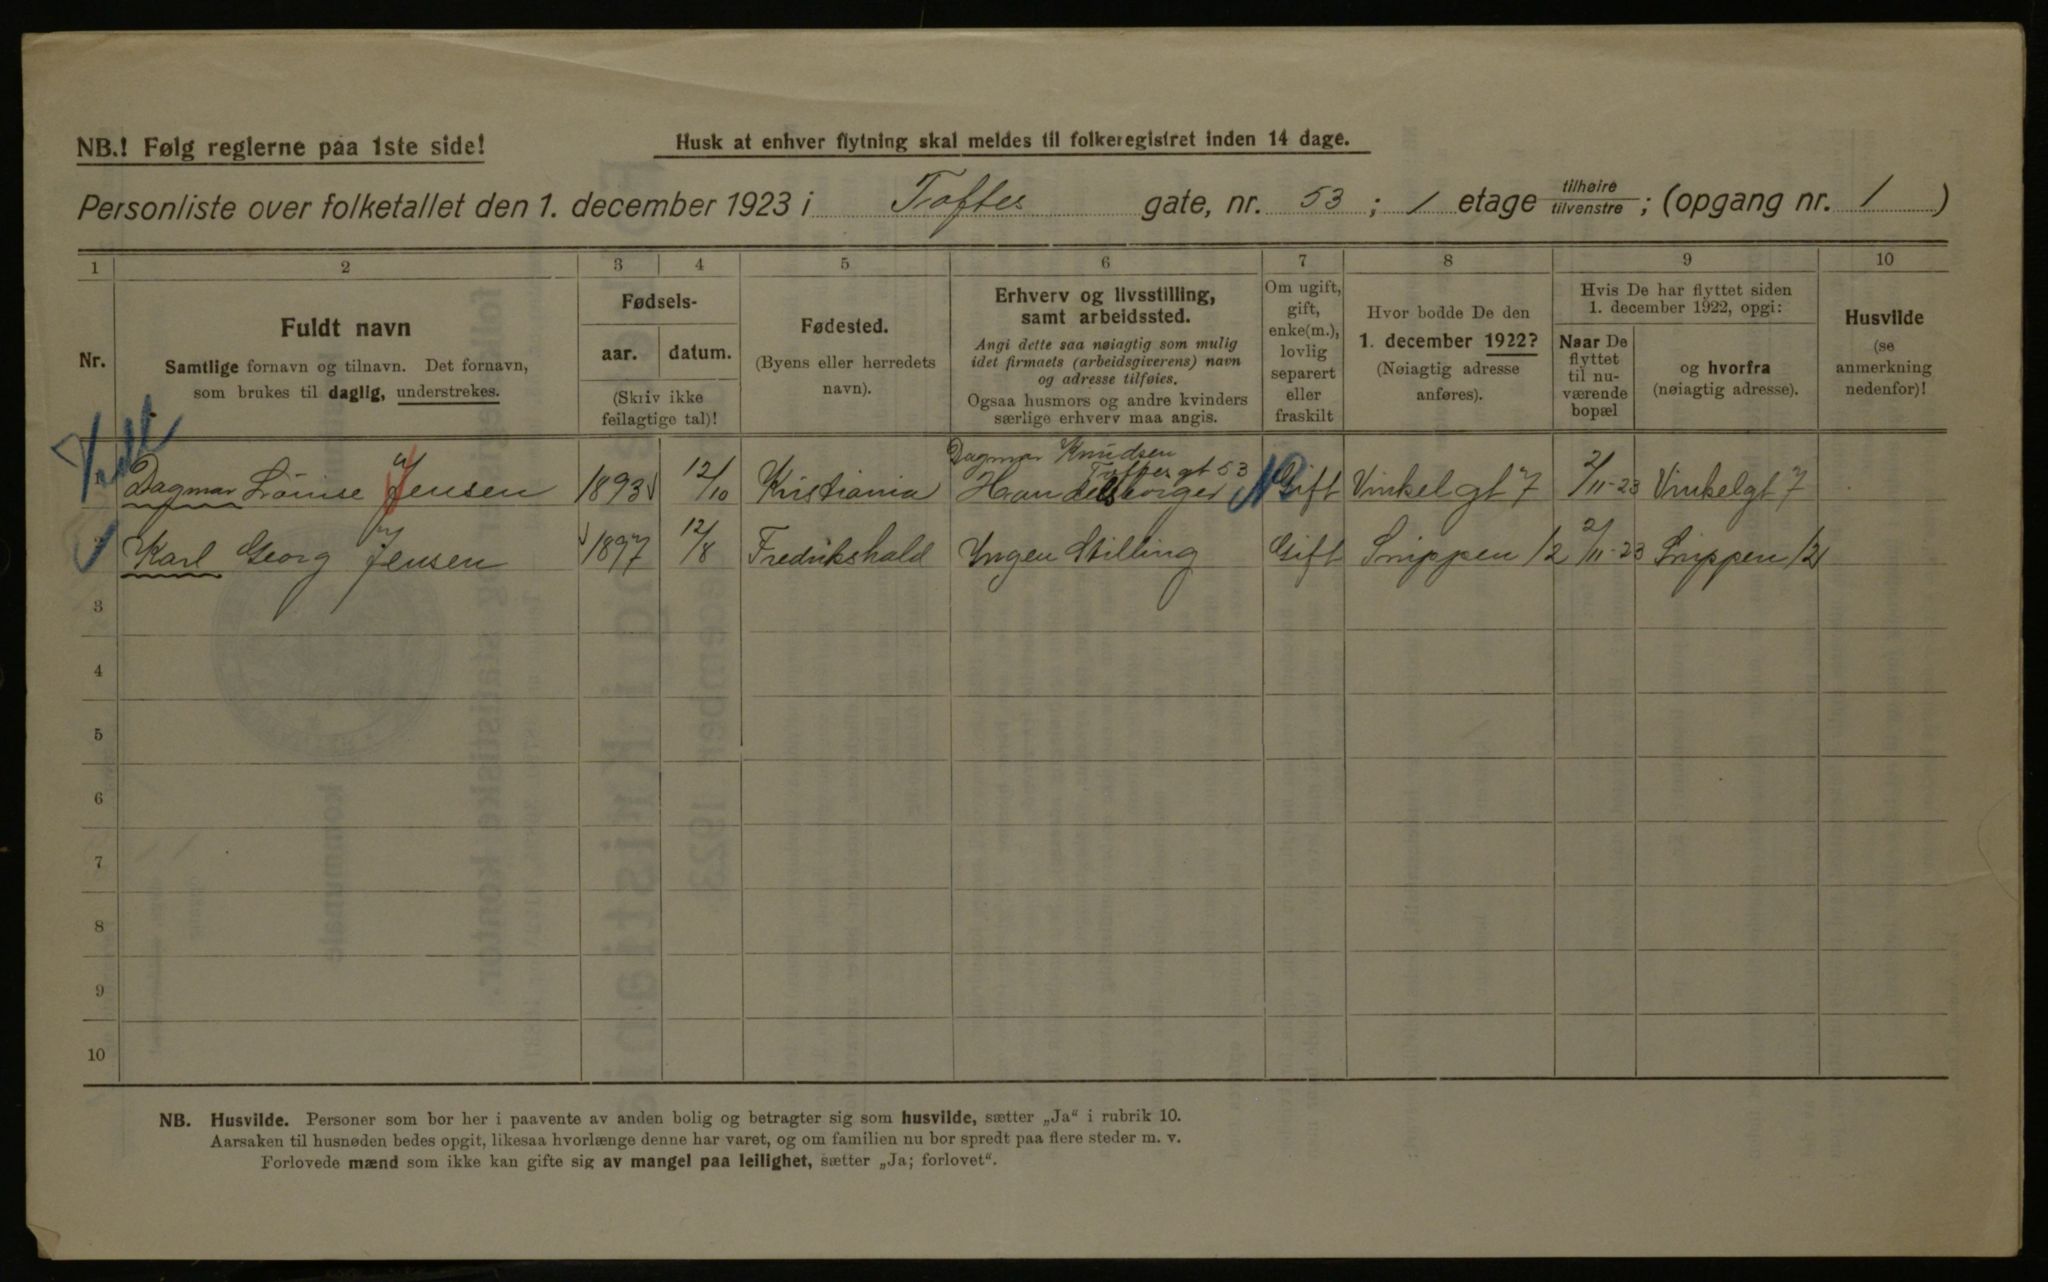 NB.! Følg reglerne paa 1ste side!
Husk at enhver flytning skal meldes til folkeregistret inden 14 dage.
Personliste over folketallet den 1. december 1923 i Toftes gate, nr. 53 ; 1 etage tilhøire tilvenstre ; (opgang nr. 1 )
1 2 3 4 5 6 7 8 9 10
Nr.
Fuldt navn
Samtlige fornavn og tilnavn. Det fornavn,
som brukes til daglig, understrekes.
Fødsels-
aar. datum.
(Skriv ikke
feilagtige tal)!
Fødested.
(Byens eller herredets
navn).
Erhverv og livsstilling,
samt arbeidssted.
Angi dette saa nøiagtig som mulig
idet firmaets (arbeidsgiverens) navn
og adresse tilføies.
Ogsaa husmors og andre kvinders
særlige erhverv maa angis.
Om ugift,
gift,
enke(m.),
lovlig
separert
eller
fraskilt
Hvor bodde De den
1. december 1922?
(Nøiagtig adresse
anføres).
Hvis De har flyttet siden
1. december 1922, opgi:
Naar De
flyttet
til nu-
værende
bopæl
og hvorfra
(nøiagtig adresse).
Husvilde
(se
anmerkning
nedenfor)!
Dagmar Knudsen
Toftes gt 53
1 Dagmar Lovise Jensen 1893 12/10 Kristiania Handelsborger Gift Vinkelgt 7 2/11-23 Vinkelgt 7
2 Karl Georg Jensen 1897 12/8 Fredrikshald Yngen Stilling Gift Snippen 12 2/11-23 Snippen 12
3
4
5
6
7
8
9
10
NB. Husvilde. Personer som bor her i paavente av anden bolig og betragter sig som husvilde, sætter „Ja“ i rubrik 10.
Aarsaken til husnøden bedes opgit, likesaa hvorlænge denne har varet, og om familien nu bor spredt paa flere steder m. v.
Forlovede mænd som ikke kan gifte sig av mangel paa leilighet, sætter „Ja; forlovet“.